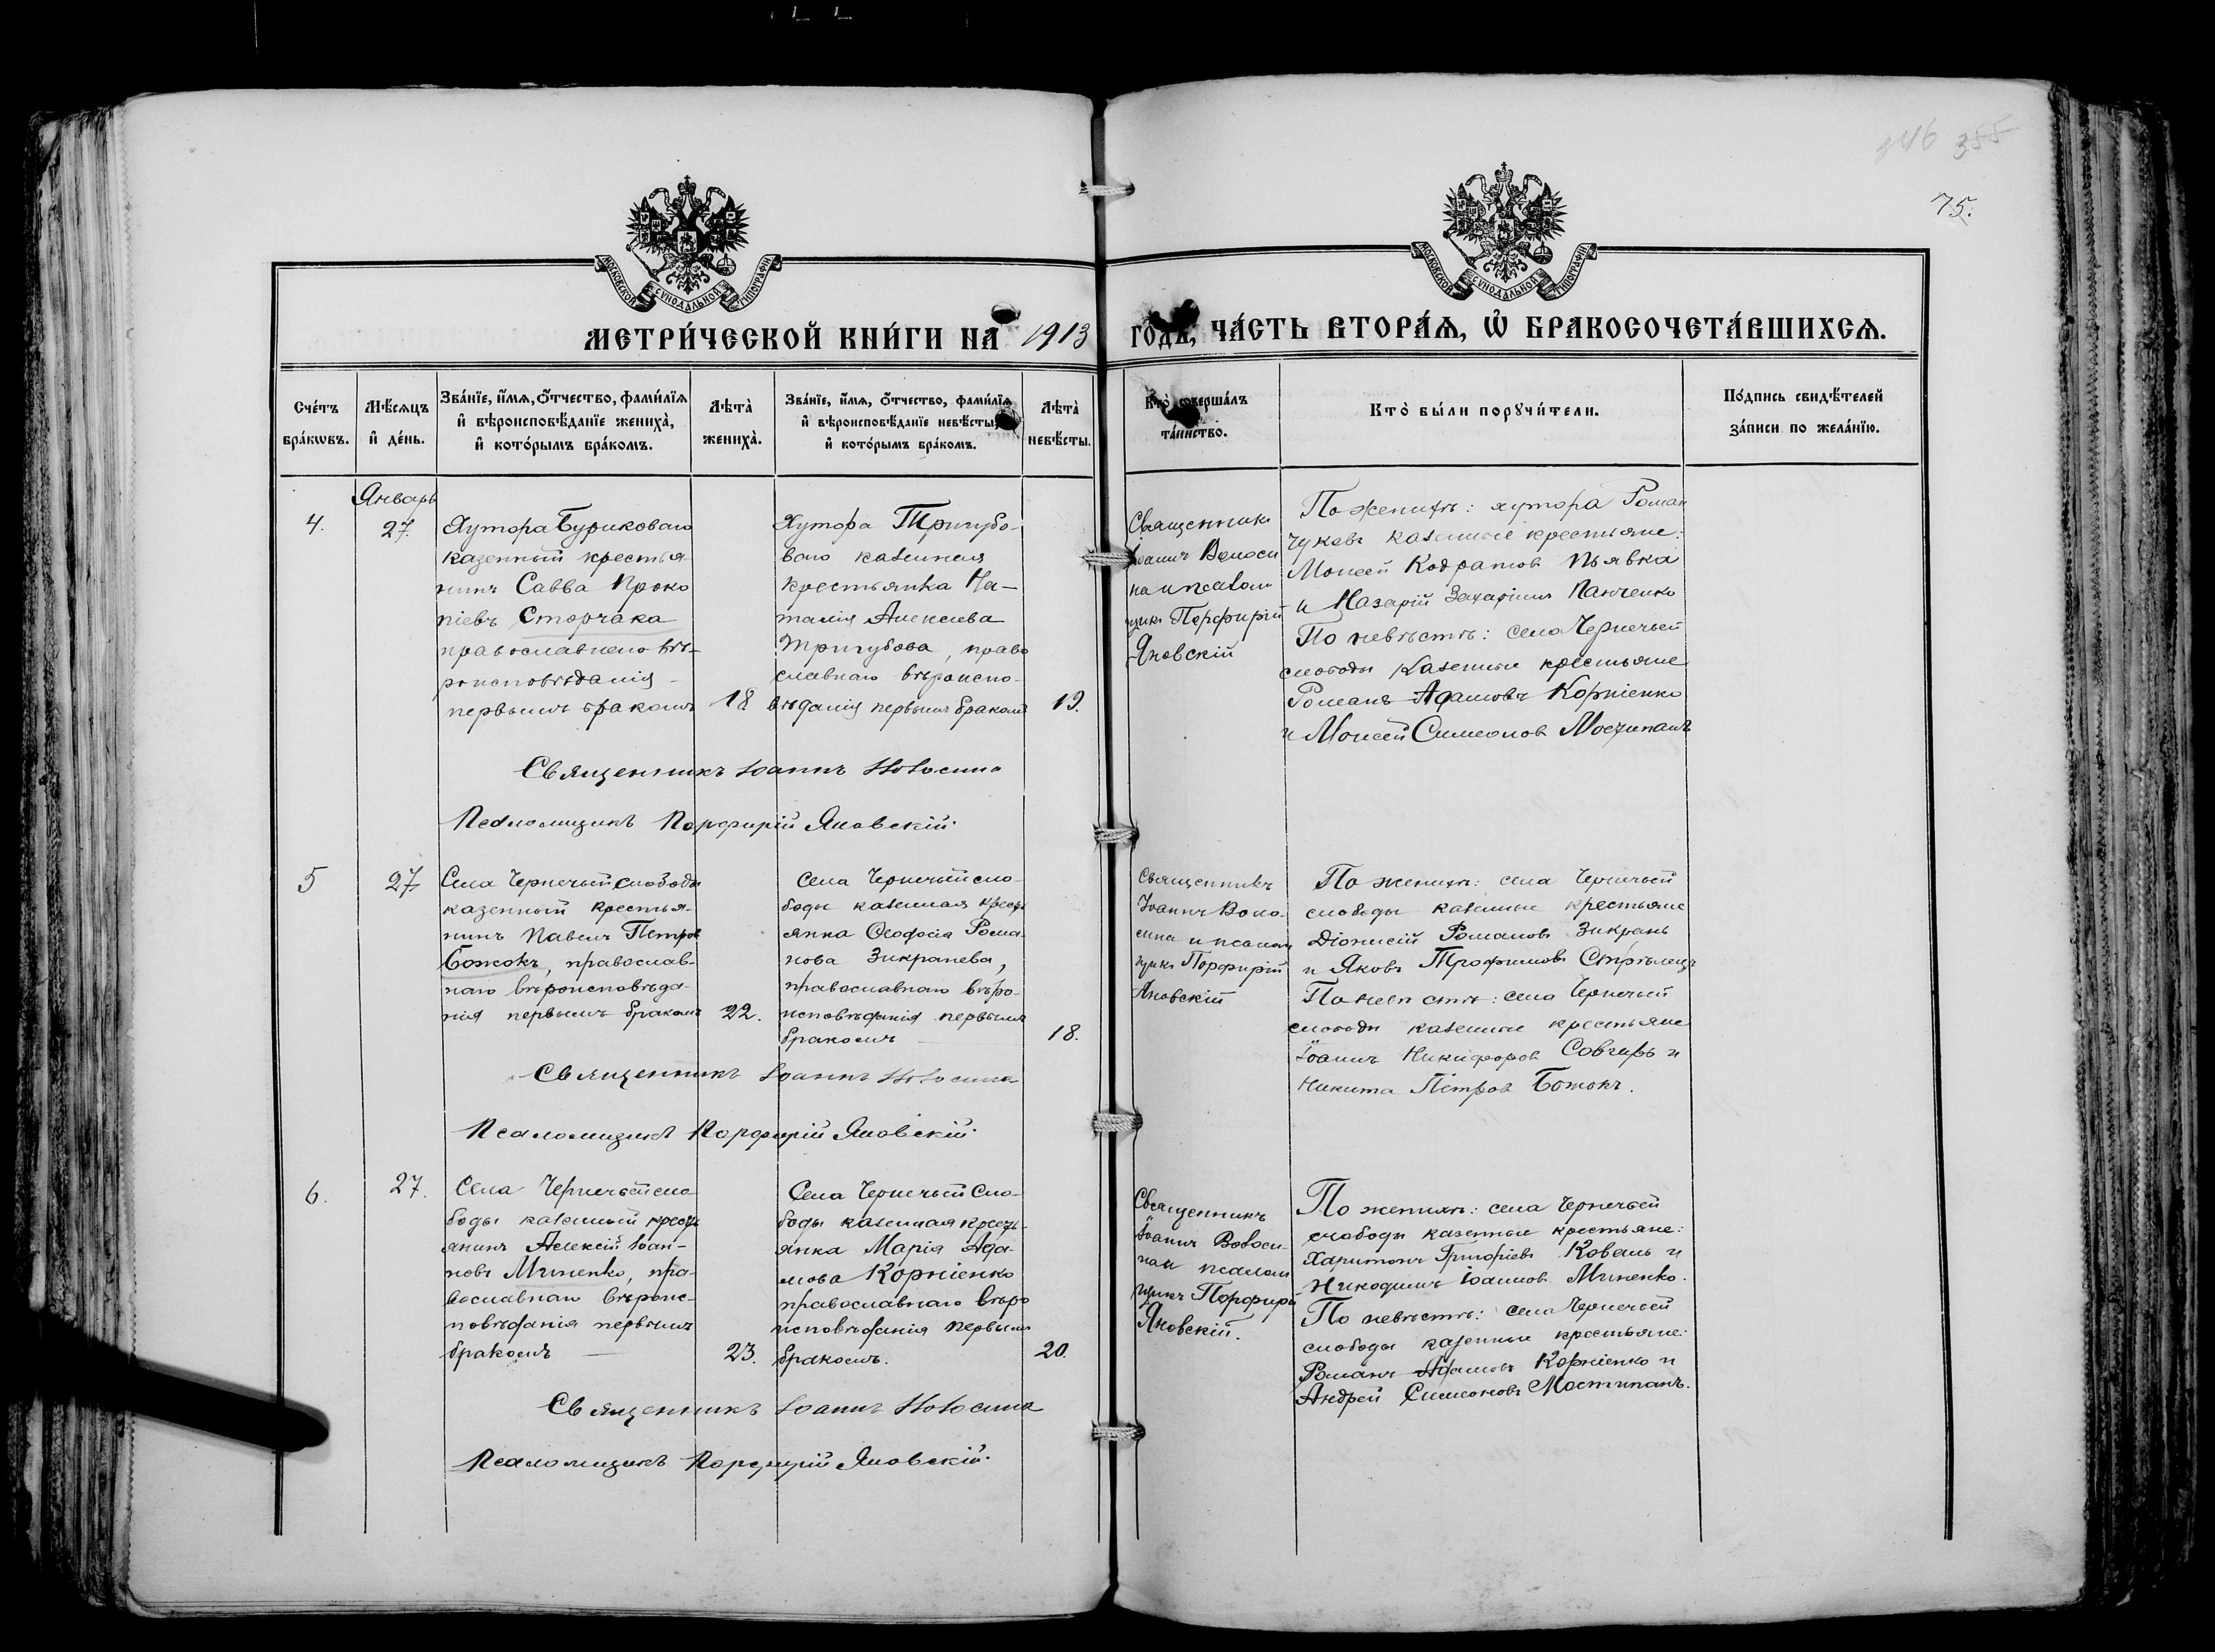 346 355
75.
МОСКОВСКОЙ СѴНОДАЛЬНОЙ ТИПОГРАФІИ
МОСКОВСКОЙ СѴНОДАЛЬНОЙ ТИПОГРАФІИ
МЕТРИ́ЧЕСКОЙ КНИ́ГИ НА 1913 ГО́ДЪ, ЧА́СТЬ ВТОРА́Ѧ, Ѡ҆ БРАКОСОЧЕТА́ВШИХСѦ.
Сче́тъ
бра́кѡвъ.
Мѣ́сѧцъ
и҆ де́нь.
Зва́нїе, и҆́мѧ, ѻ҆́тчество, фами́лїѧ
и҆ вѣроисповѣ́данїе жениха̀,
и҆ кото́рымъ бра́комъ.
Лѣта̀
жениха̀.
Зва́нїе, и҆́мѧ, ѻ҆́тчество, фами́лїѧ
и҆ вѣроисповѣ́данїе невѣ́сты,
и҆ кото́рымъ бра́комъ.
Лѣта̀
невѣ́сты.
Кто̀ соверша́лъ
та́инство.
Кто̀ бы́ли порꙋчи́тели.
По́дпись свидѣ́телей
за́писи по жела́нїю.
4.
Январь
27.
Хутора Буриковаго
казенный крестья
нинъ Савва Проко
піевъ Сторчака
православнаго вѣ-
роисповѣданія
первымъ бракомъ
18
Хутора Тригубо-
ваго казенная
крестьянка На-
талія Алексѣева
Тригубова, право
славнаго вѣроиспо-
вѣданія первымъ бракомъ
19.
Священникъ
Іоаннъ Волоси
на и псалом
щикъ Порфирій
Яновскій
По женихѣ: хутора Роман
чуковъ казенные крестьяне:
Моисей Кодратов Пьявка
и Назарій Захаріинъ Панченко
По невѣстѣ: села Чернечьей
слободы казенные крестьяне
Романъ Адамовъ Корніенко
и Моисей Симеонов Мостипанъ
Священникъ Іоаннъ Волосина
Псаломщикъ Порфирій Яновскій.
5
27
Села Чернечьей слободы
казенный крестья-
нинъ Павелъ Петров
Божокъ, православ-
наго вѣроисповѣда-
нія первымъ бракомъ
22.
Села Чернечьей сло-
боды казенная крест
янка Ѳеодосія Рома-
нова Зикранева,
православнаго вѣро-
исповѣданія первымъ
бракомъ
18.
Священникъ
Іоаннъ Воло-
сина и псалом
щикъ Порфирій
Яновскій
По женихѣ: села Чернечьей
слободы казенные крестьяне
Діонисій Романовъ Зикрань
и Яковъ Трофимовъ Стрѣлецъ
По невѣстѣ: села Чернечьей
слободы казенные крестьяне
Іоаннъ Никифоров Совгирь и
Никита Петров Божокъ.
Священникъ Іоаннъ Волосина
Псаломщикъ Порфирій Яновскій.
6.
27.
Села Чернечьей сло
боды казенный крест
янинъ Алексій Іоан-
новъ Миненко, пра-
вославнаго вѣроис-
повѣданія первымъ
бракомъ
23.
Села Чернечьей Сло-
боды казенная кресть-
янка Марія Ада-
мова Корніенко
православнаго вѣро
исповѣданія первымъ
бракомъ.
20.
Священникъ
Іоаннъ Волоси-
на и псалом
щикъ Порфирій
Яновскій.
По женихѣ: села Чернечьей
слободы казенные крестьяне:
Харитонъ Григоріевъ Коваль и
Никодимъ Іоаннов Миненко.
По невѣстѣ: села Чернечьей
слободы казенные крестьяне:
Романъ Адамовъ Корніенко и
Андрей Симеоновъ Мостипанъ.
Священникъ Іоаннъ Волосина
Псаломщикъ Порфирій Яновскій.